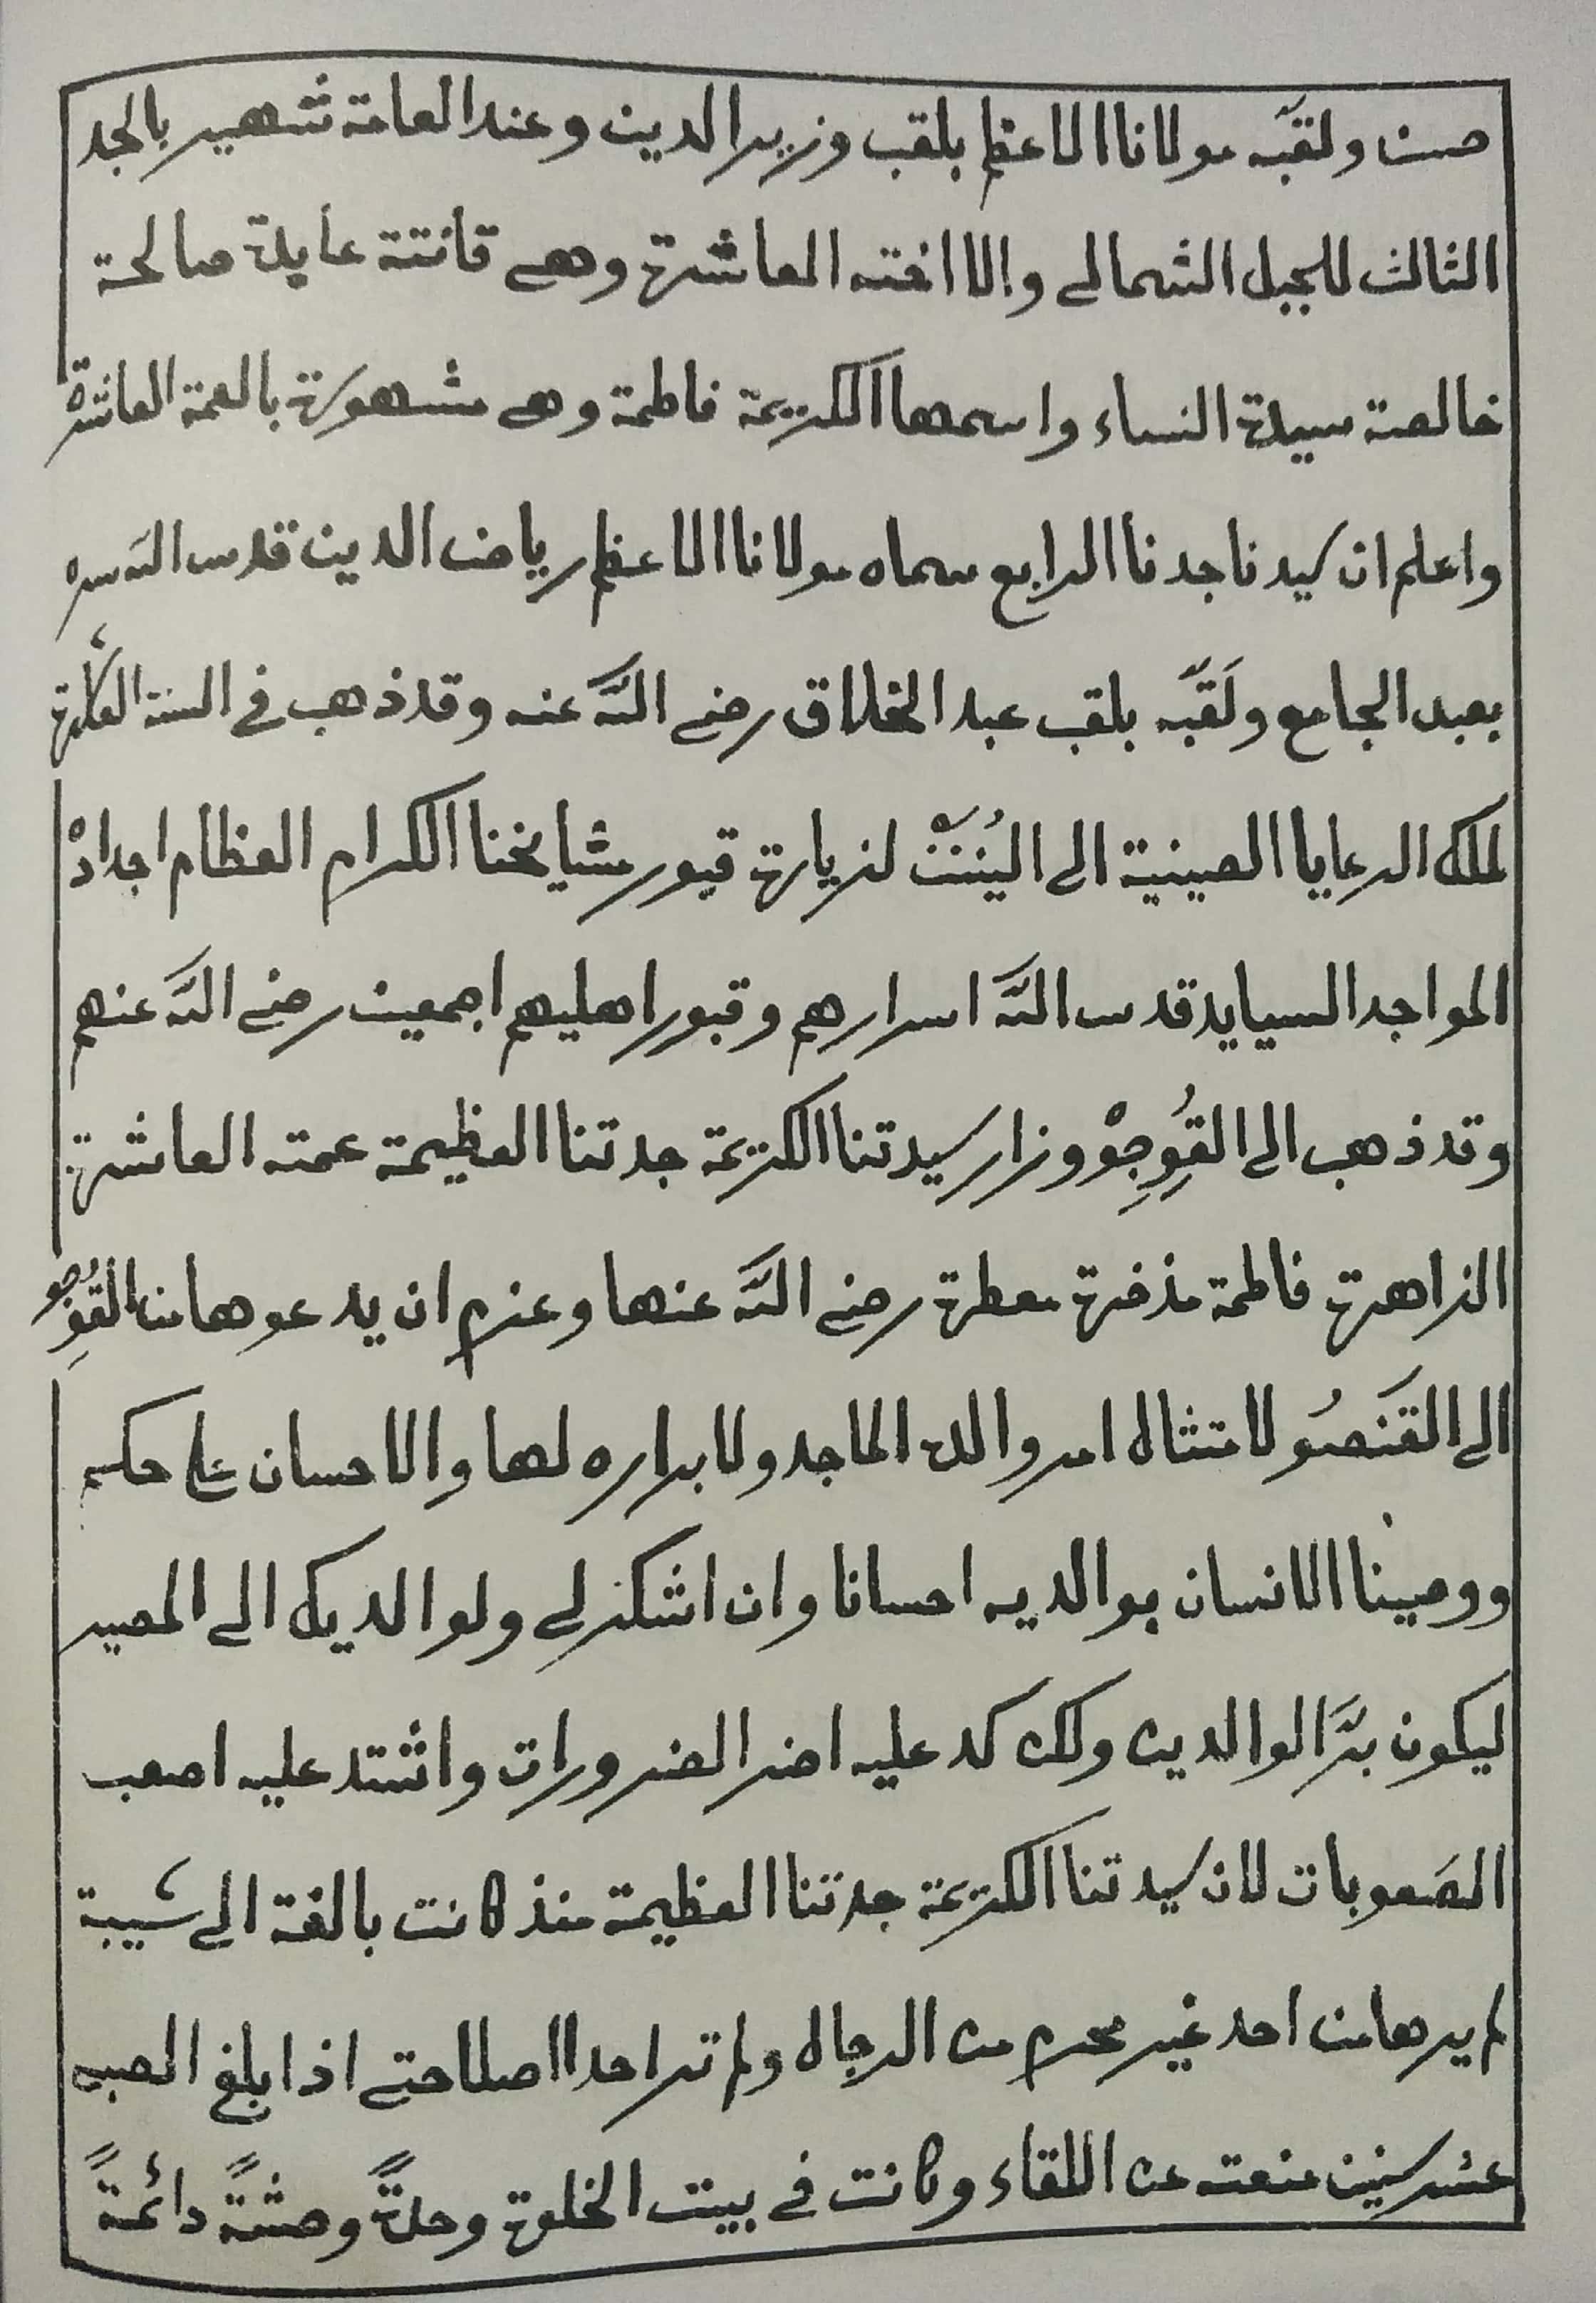 صن ولقّبه مولانا الاعظم بلقب وزير الدين وعند العامة شهير بالجد
الثالث للجبل الشمالي والا اخته العاشرة وهي قانتة عابدة صالحة
خالصة سيدة النساء واسمها الكريمة فاطمة وهي مشهورة بالعمة العاشرة
واعلم ان سيدنا جدنا الرابع سماه مولانا الاعظم رياض الدين قدس الله سره
بعبد الجامع ولَقّبه بلقب عبد الخلاق رضي الله عنه وقد ذهب في السنة
لملك الرعايا الصينية الى اليُنَنْ لزيارة قبور مشايخنا الكرام العظام اجداد
المواجد السيايد قدس الله اسرارهم وقبور اهليهم اجمعين رضي الله عنهم
وقد ذهب الى القُوِجِوْ وزار سيدتنا الكريمة جدتنا العظيمة عمته العاشرة
الزاهرة فاطمة مذفرة معطرة رضي الله عنها وعزم ان يدعوها من القُوِجو
الى القَنصُو لامتثال امر والده الماجد ولابراره لها والاحسان على حكم
ووصينا الانسان بوالديه احسانا وان اشكر لي ولوالديك الي المصير
ليكون برًّا لوالدين ولكن كد عليه اضر الضرورات واشتد عليه اصعب
الصَعوبات لان سيدتنا الكريمة جدتنا العظيمة منذ كانت بالغة الى شيبة
لم يرها من احد غير محرم من الرجال ولم تر احدا اصلا حتى اذا بلغ الصبي
عشر سنين منعته عن اللقاء وكانت في بيت الخلوة وحدةً وحشةً دائمةً